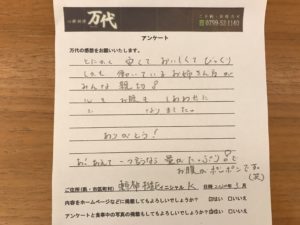 万代
ご予約・お問合せ
☎0799-52-1140
アンケート
万代の感想をお願いいたします。
とにかく 安くて おいしくて びっくり
しかも 働いている お姉さん方が
みんな 親切!
心も お腹も しあわせに
なりました。
ありがとう!
お腹 ポンポンです。
(笑)
ご住所(県・市区町村) イニシャル K 日時 月
内容をホームページなどに掲載してもよろしいでしょうか? はい □いいえ
アンケートと食事中の写真の掲載もしてもよろしいでしょうか? はい □いいえ